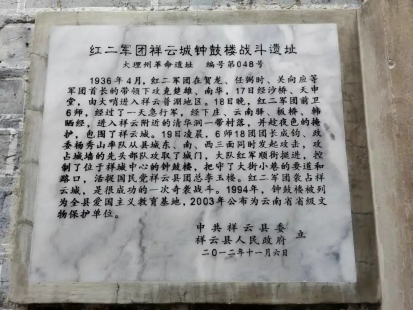 红二军团祥云城钟鼓楼战斗遗址
大理州革命遗址 编号第048号
1936年4月，红二军团在贺龙、任弼时、关向应等
军团首长的带领下攻克楚雄、南华，17日经沙桥、天申
堂，由大哨进入祥云普淜地区。18日晚，红二军团前卫
6师，经过了一天急行军，经下庄、云南驿、板桥、韩
晒经，进入祥云附近的清华洞一带村落，并趁夜色的掩
护，包围了祥云城。19日凌晨，6师18团团长成钧、政
委杨秀山率队从县城东、南、西三面同时发起攻击，攻
占城墙的先头部队攻取了城门，大队红军顺街挺进，控
制了位于祥城中心的钟鼓楼，把守了大街小巷的要道和
路口，活捉国民党祥云县团总李玉楼。红二军团袭占祥
云城，是很成功的一次奇袭战斗。1994年，钟鼓楼被列
为全县爱国主义教育基地，2003年公布为云南省省级文
物保护单位。
中共祥云县委
祥云县人民政府 立
二〇一二年十一月六日